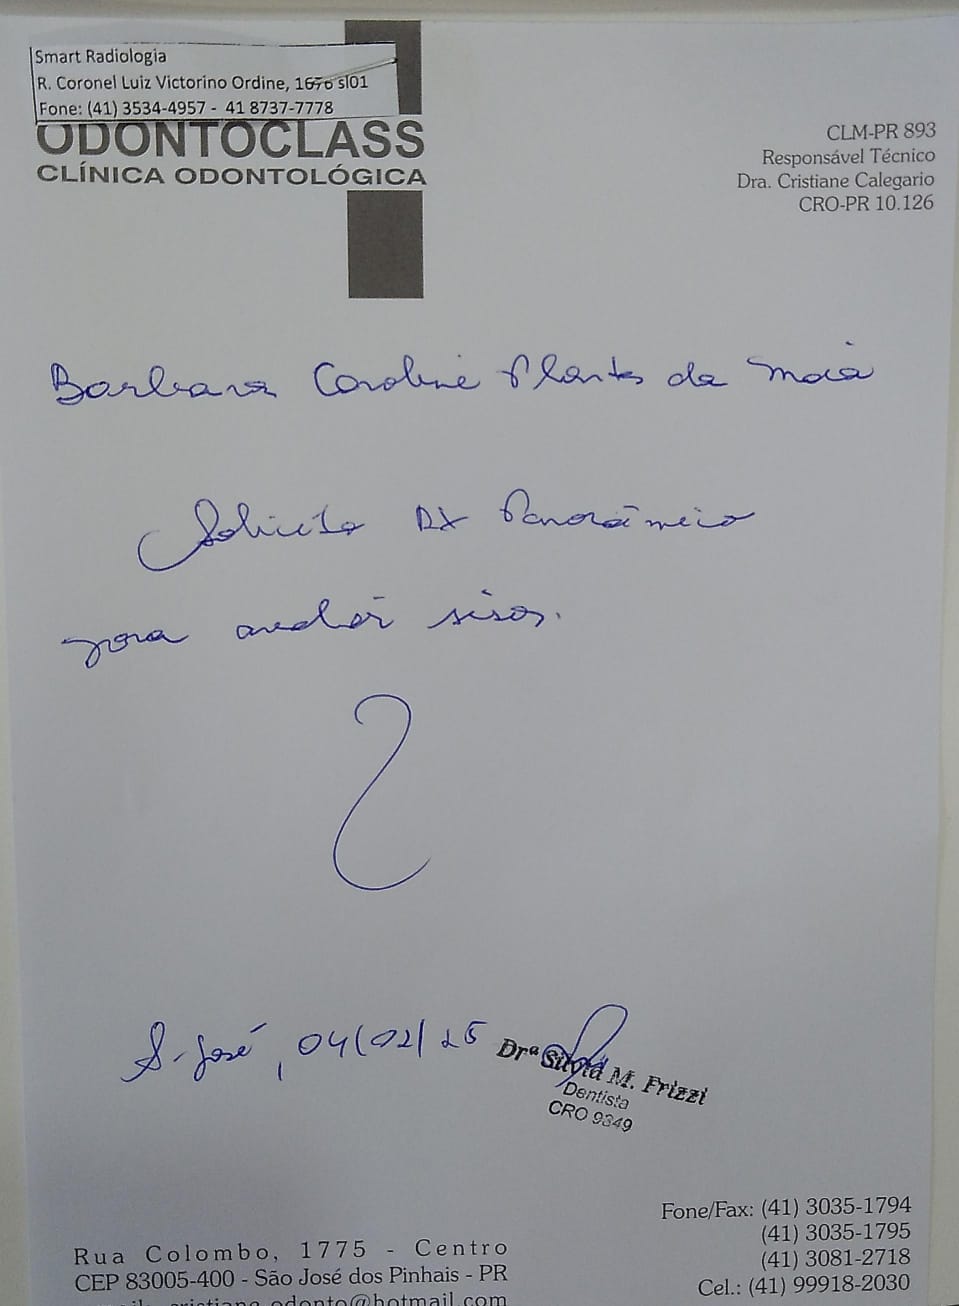 Smart Radiologia
R. Coronel Luiz Victorino Ordine, 1676 sl01
Fone: (41) 3534-4957 - 41 8737-7778
ODONTOCLASS
CLÍNICA ODONTOLÓGICA
CLM-PR 893
Responsável Técnico
Dra. Cristiane Calegario
CRO-PR 10.126
Barbara Caroline Plants da Maia
Solicito RX Panorâmico
para avaliar sisos.
S. José, 04/02/25
Drª Silvia M. Frizzi
Dentista
CRO 9349
Fone/Fax: (41) 3035-1794
(41) 3035-1795
(41) 3081-2718
Cel.: (41) 99918-2030
Rua Colombo, 1775 - Centro
CEP 83005-400 - São José dos Pinhais - PR
cristiane.odonto@hotmail.com